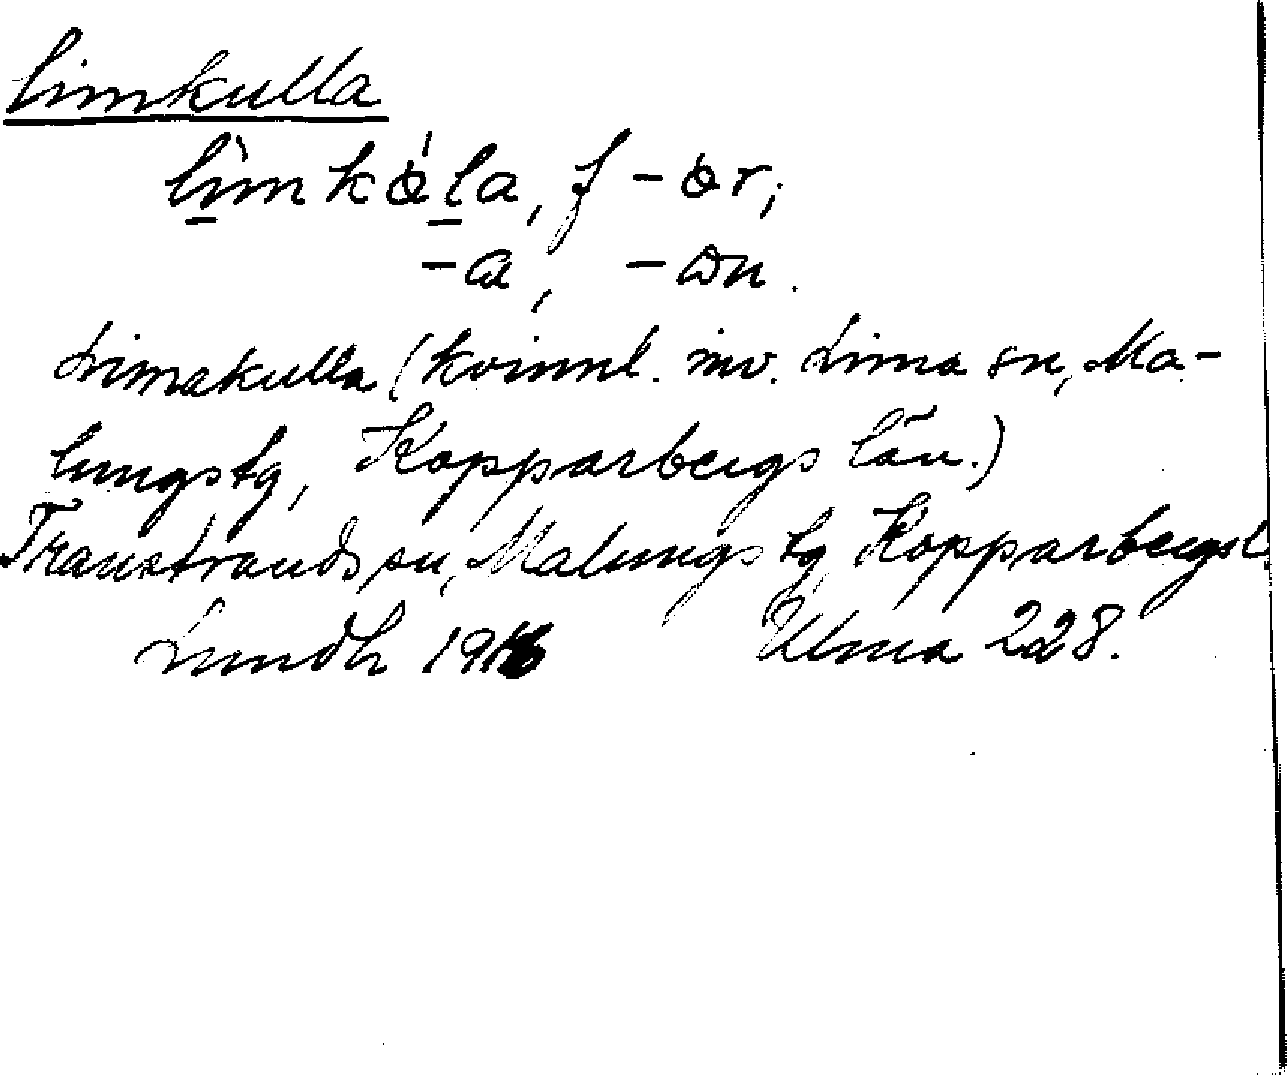 limkulla
lìmkòla, f -ør;
-a, -øn.
Limakulla (kvinnl. inv. Lima sn, Ma-
lungs tg, Kopparbergs län.)
Transtrands sn, Malungs tg Kopparbergs l.
Lundh 1916 Ulma 228.